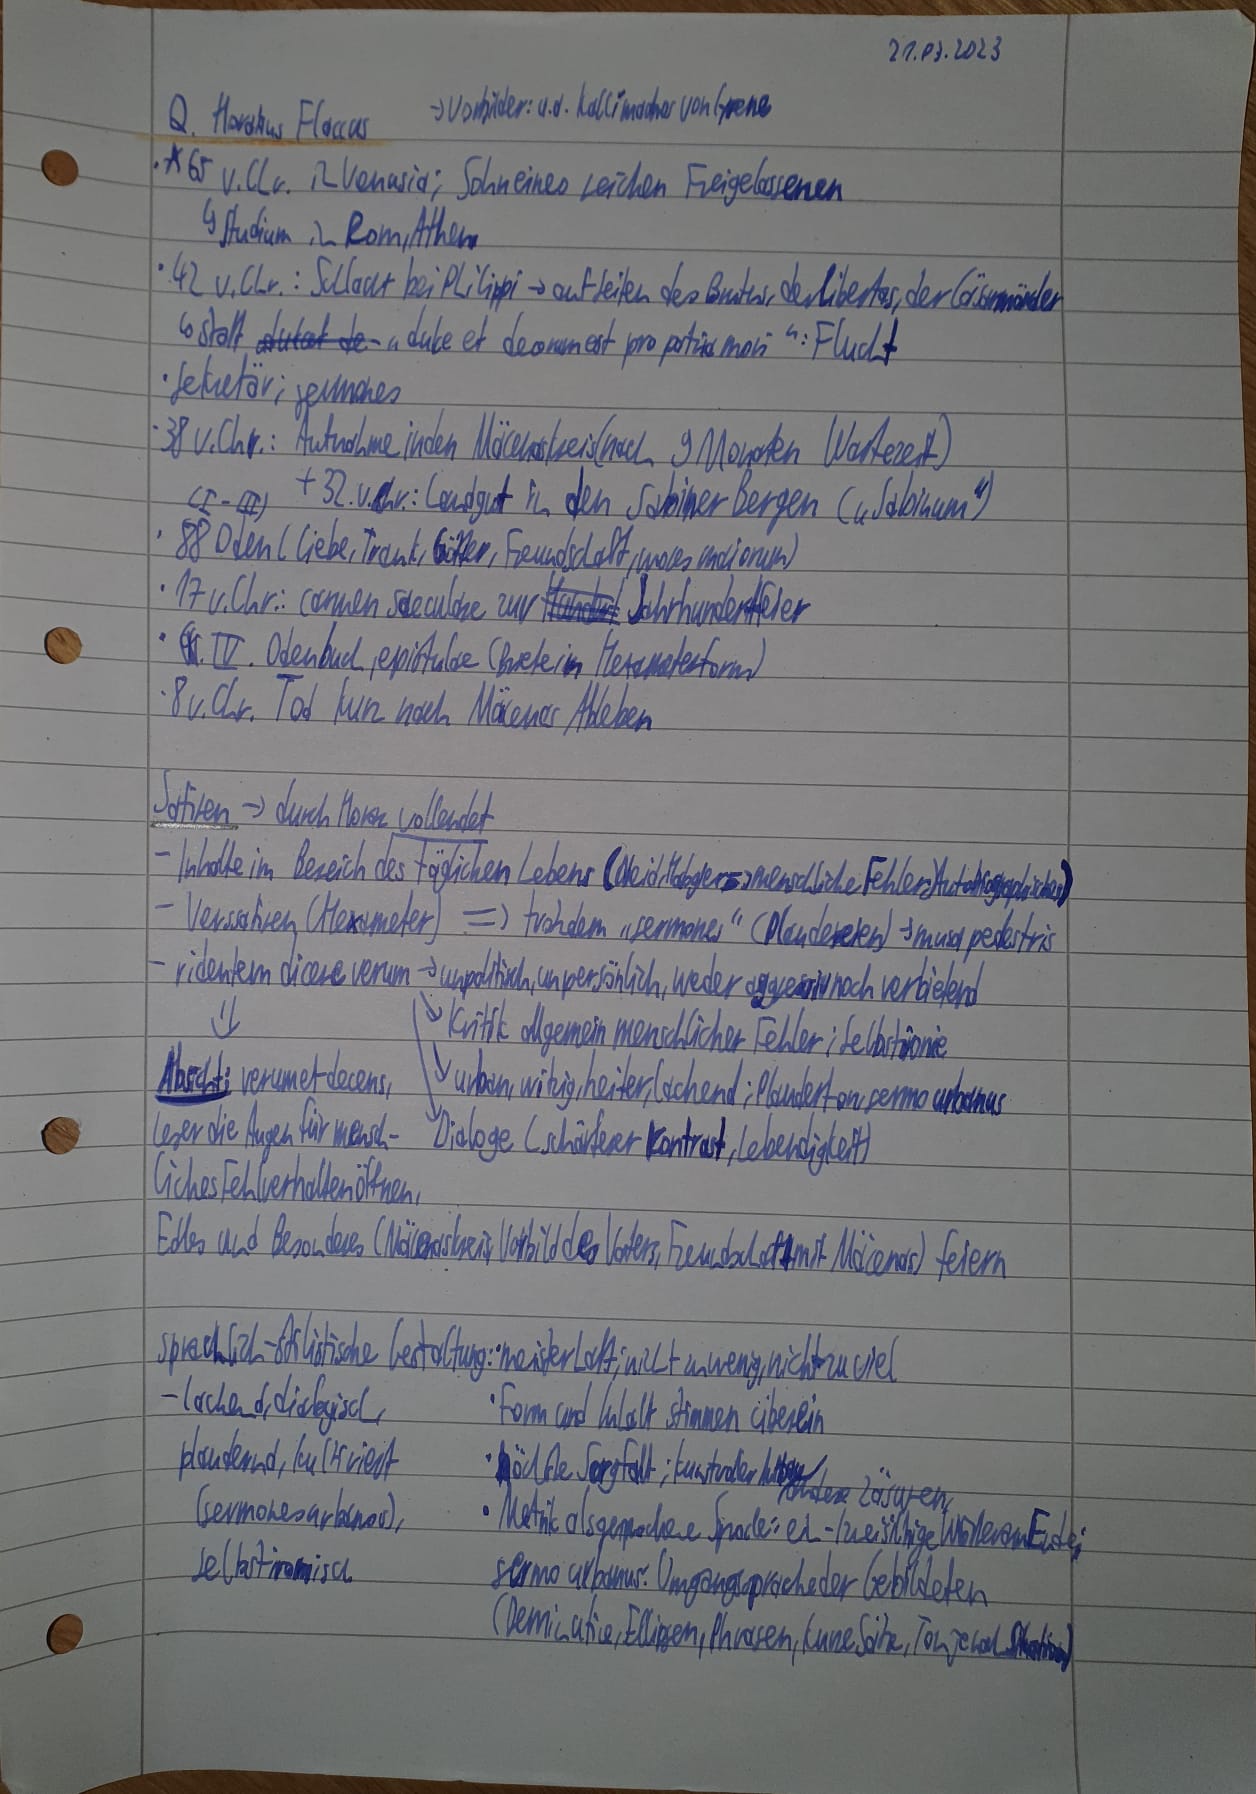 21.03.2023
Q. Horatius Flaccus → Vorbilder: u.a. Kallimachos von Cyrene
· *65 v.Chr. in Venusia; Sohn eines reichen Freigelassenen
↳ Studium in Rom, Athen
· 42 v.Chr.: Schlacht bei Philippi → auf Seiten des Brutus, der libertas, der Cäsarmörder
↳ statt „dulce et decorum est pro patria mori“: Flucht
· Sekretär; sermones
· 38 v.Chr.: Aufnahme in den Mäcenaskreis (nach 9 Monaten Wartezeit)
+ 32. v.Chr.: Landgut in den Sabiner Bergen („Sabinum“)
(I-III)
· 88 Oden (Liebe, Trank, Götter, Freundschaft, mores maiorum)
· 17 v.Chr.: carmen saeculare zur Jahrhundertfeier
· IV. Odenbuch, epistulae (Briefe in Hexameterform)
· 8 v.Chr. Tod kurz nach Mäcenas Ableben
Satiren → durch Horaz vollendet
- Inhalte im Bereich des täglichen Lebens (Neid, Habgier → menschliche Fehler, Autobiographisches)
- Verssatiren (Hexameter) => trotzdem „sermones“ (Plaudereien) → musa pedestris
- ridentem dicere verum → unpolitisch, unpersönlich, weder aggressiv noch verbietend
↓ ↘ Kritik allgemein menschlicher Fehler; Selbstironie
Absicht: verum et decens, ↘ urban, witzig, heiter, lachend; Plauderton, sermo urbanus
Leser die Augen für mensch- ↘ Dialoge (schärferer Kontrast, Lebendigkeit)
liches Fehlverhalten öffnen,
Edles und Besonderes (Mäcenaskreis, Vorbild des Vaters, Freundschaft mit Mäcenas) feiern
sprachlich-stilistische Gestaltung: · meisterhaft; nicht zu wenig, nicht zu viel
- lachend, dialogisch, · Form und Inhalt stimmen überein
plaudernd, kultiviert · höchste Sorgfalt; kunstvoller
(sermones urbanos), Zäsuren,
· Metrik als gesprochene Sprache: ein-/zweisilbige Wörter am Ende;
selbstironisch sermo urbanus: Umgangssprache der Gebildeten
(Deminutive, Ellipsen, Phrasen, kurze Sätze, Ton je nach Situation)